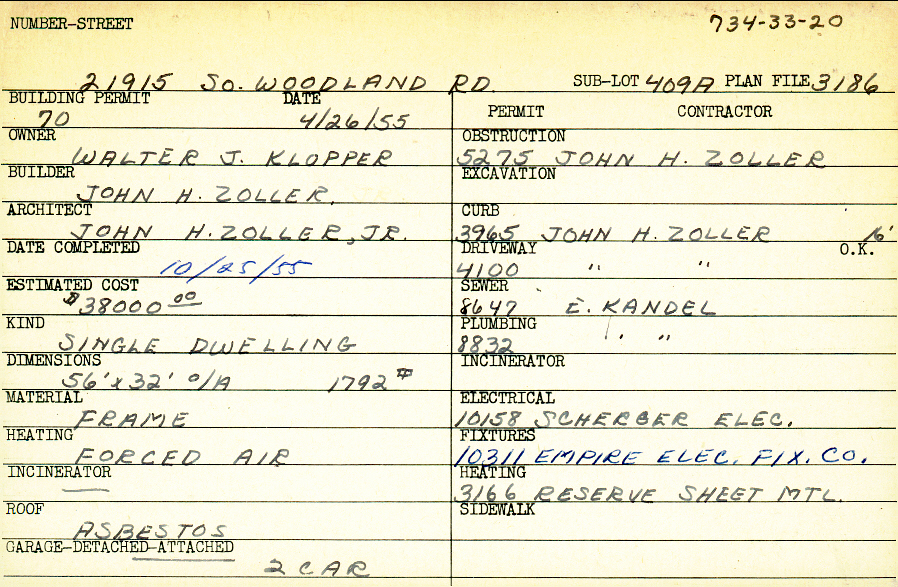 NUMBER-STREET
734-33-20
21915 SO. WOODLAND RD. SUB-LOT 409A PLAN FILE 3186
BUILDING PERMIT DATE
70 4/26/55
OWNER
WALTER J. KLOPPER
BUILDER
JOHN H. ZOLLER.
ARCHITECT
JOHN H. ZOLLER, JR.
DATE COMPLETED
10/25/55
ESTIMATED COST
$38000 00
KIND
SINGLE DWELLING
DIMENSIONS
56' x 32' O/A 1792 #
MATERIAL
FRAME
HEATING
FORCED AIR
INCINERATOR
—
ROOF
ASBESTOS
GARAGE-DETACHED-ATTACHED
2 CAR
PERMIT CONTRACTOR
OBSTRUCTION
5275 JOHN H. ZOLLER
EXCAVATION
CURB
3965 JOHN H. ZOLLER 16'
DRIVEWAY O.K.
4100 " "
SEWER
8647 E. KANDEL
PLUMBING
8832 " "
INCINERATOR
ELECTRICAL
10158 SCHERBER ELEC.
FIXTURES
10311 EMPIRE ELEC. FIX. CO.
HEATING
3166 RESERVE SHEET MTL.
SIDEWALK